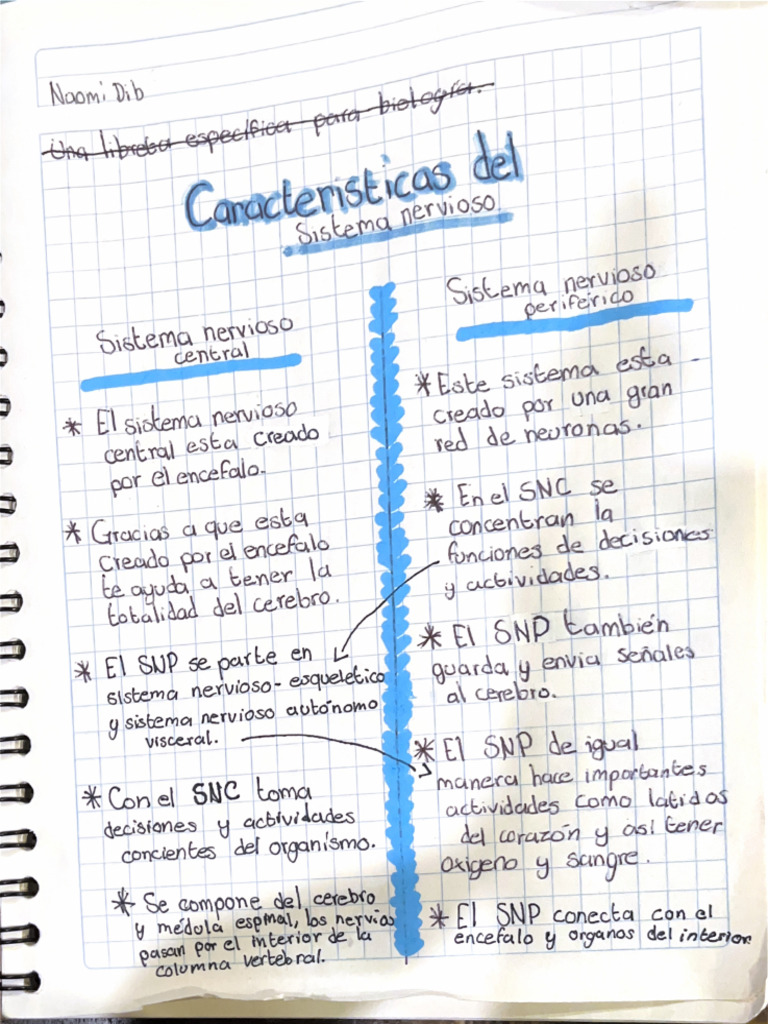 Naomi Dib
Una libreta específica para biología.
Caracteristicas del
Sistema nervioso
Sistema nervioso
central
* El sistema nervioso
central esta creado
por el encefalo.
* Gracias a que esta
creado por el encefalo
te ayuda a tener la
totalidad del cerebro.
* El SNP se parte en
sistema nervioso-esqueletico
y sistema nervioso autónomo
visceral.
* Con el SNC toma
decisiones y actividades
concientes del organismo.
* Se compone del cerebro
y médula espinal, los nervios
pasan por el interior de la
columna vertebral.
Sistema nervioso
perifeirico
* Este sistema esta
creado por una gran
red de neuronas.
* En el SNC se
concentran la
funciones de decisiones
y actividades.
* El SNP también
guarda y envia señales
al cerebro.
* El SNP de igual
manera hace importantes
actividades como latidos
del corazón y así tener
oxigeno y sangre.
* El SNP conecta con el
encefalo y organos del interior